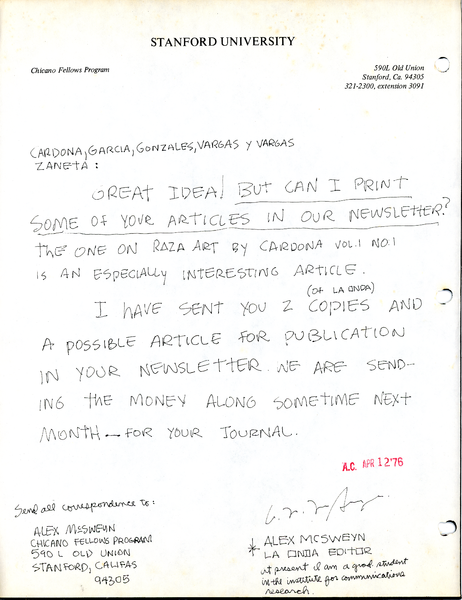 STANFORD UNIVERSITY
Chicano Fellows Program
590L Old Union
Stanford, Ca. 94305
321-2300, extension 3091
CARDONA, GARCIA, GONZALES, VARGAS Y VARGAS
ZANETA:
GREAT IDEA! BUT CAN I PRINT
SOME OF YOUR ARTICLES IN OUR NEWSLETTER?
THE ONE ON RAZA ART BY CARDONA VOL.1 NO.1
IS AN ESPECIALLY INTERESTING ARTICLE.
(OF LA ONDA)
I HAVE SENT YOU 2 COPIES AND
A POSSIBLE ARTICLE FOR PUBLICATION
IN YOUR NEWSLETTER. WE ARE SEND-
ING THE MONEY ALONG SOMETIME NEXT
MONTH — FOR YOUR JOURNAL.
A.C. APR 12 '76
Send all correspondence to:
ALEX McSWEYN
CHICANO FELLOWS PROGRAM
590 L OLD UNION
STANFORD, CALIFAS
94305
* ALEX MCSWEYN
LA ONDA EDITOR
at present I am a grad student
in the institute for communications
research.